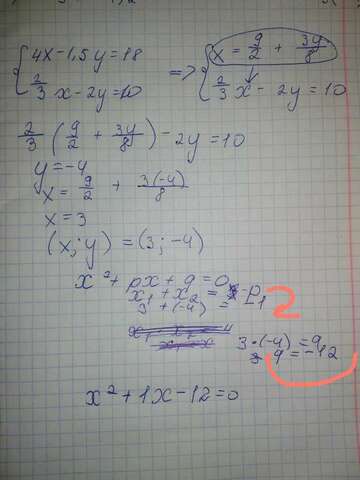 { 4x - 1,5y = 18
2/3 x - 2y = 10
=> { x = 9/2 + 3y/8
2/3 x - 2y = 10
2/3 (9/2 + 3y/8) - 2y = 10
y = -4
x = 9/2 + 3(-4)/8
x = 3
(x; y) = (3; -4)
x² + px + q = 0
x₁ + x₂ = -p
3 + (-4) =
3·(-4) = q
q = -12
x² + 1x - 12 = 0